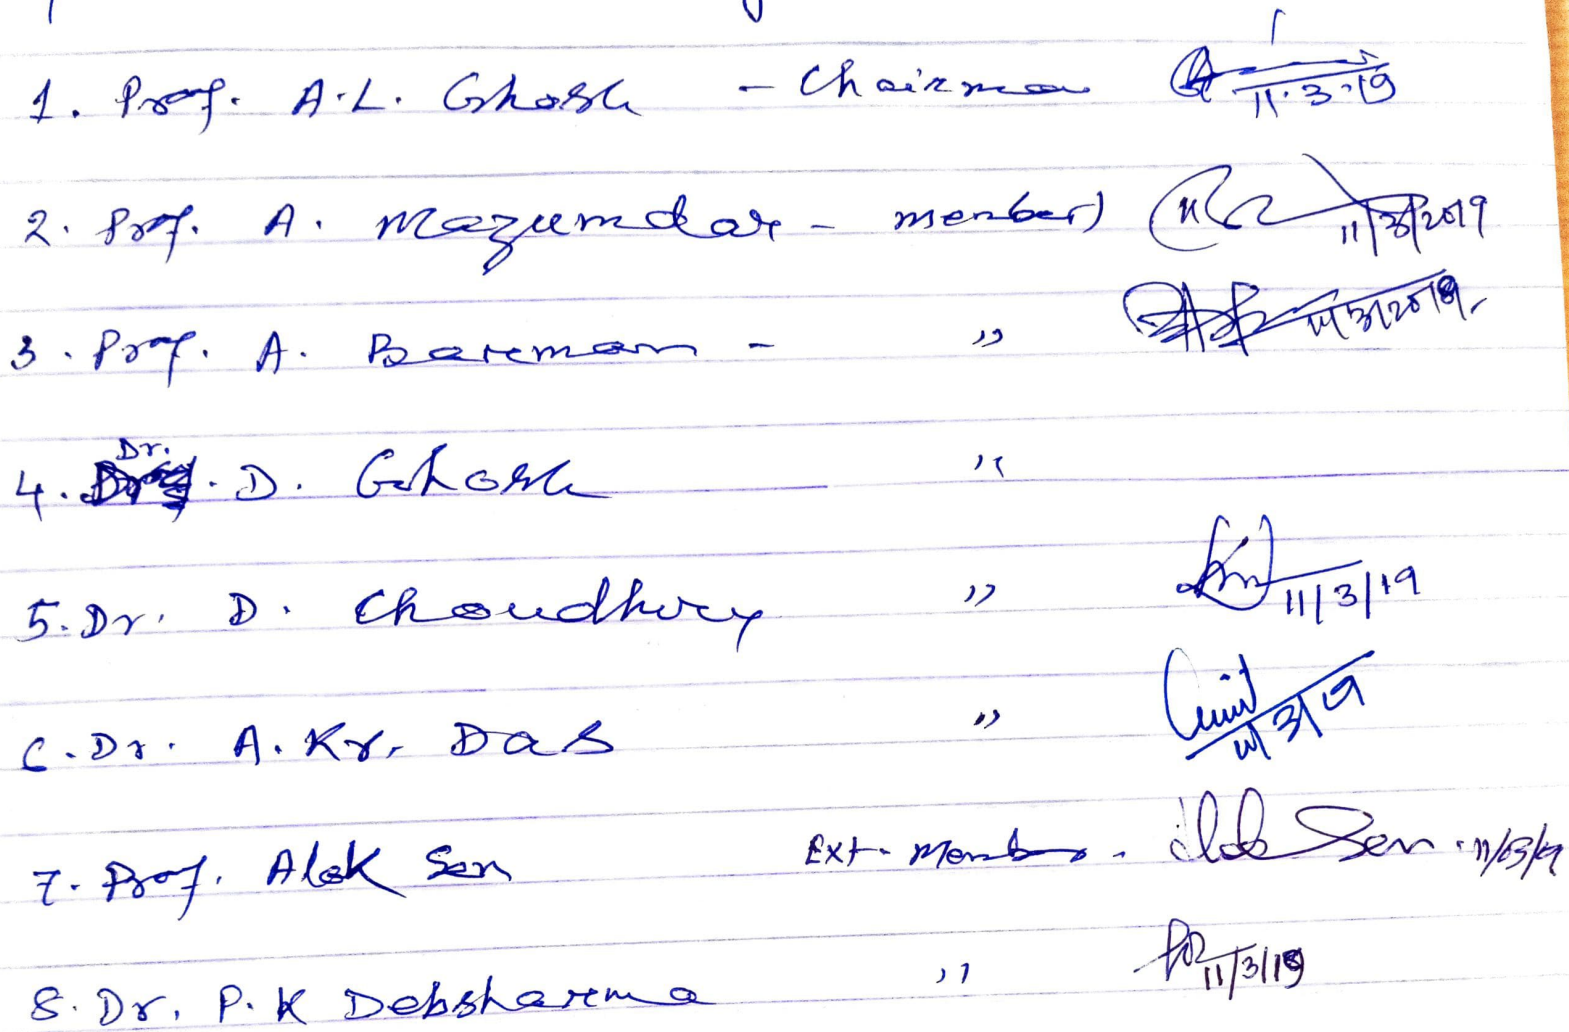 1. Prof. A.L. Ghosh - Chairman 11.3.19
2. Prof. A. Mazumdar - member) 11/3/2019
3. Prof. A. Barman - " 11/3/2019
4. Dr. D. Ghosh "
5. Dr. D. Choudhury " 11/3/19
6. Dr. A. Kr. Das " Amit 11/3/19
7. Prof. Alok Sen Ext. Member - Alok Sen 11/03/19
8. Dr. P.K Debsharma " 11/3/19